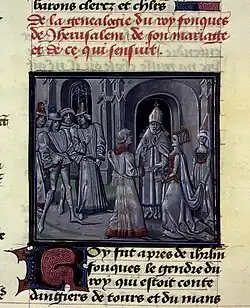 barons clerez et chlrs
De la genealogie du roy fouques
de Iherusalem, de son mariage
et de ce qui sensuit.
Oy fut apres de ihrlm
fouques le gendre du
roy qui estoit conte
dangiers de tours et du mans